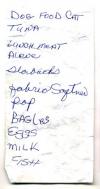 DOG FOOD CAT
TUNA
LUNCH MEAT
Starbucks
Fabric Softner
POP
BAGLES
EGGS
MILK
FISH